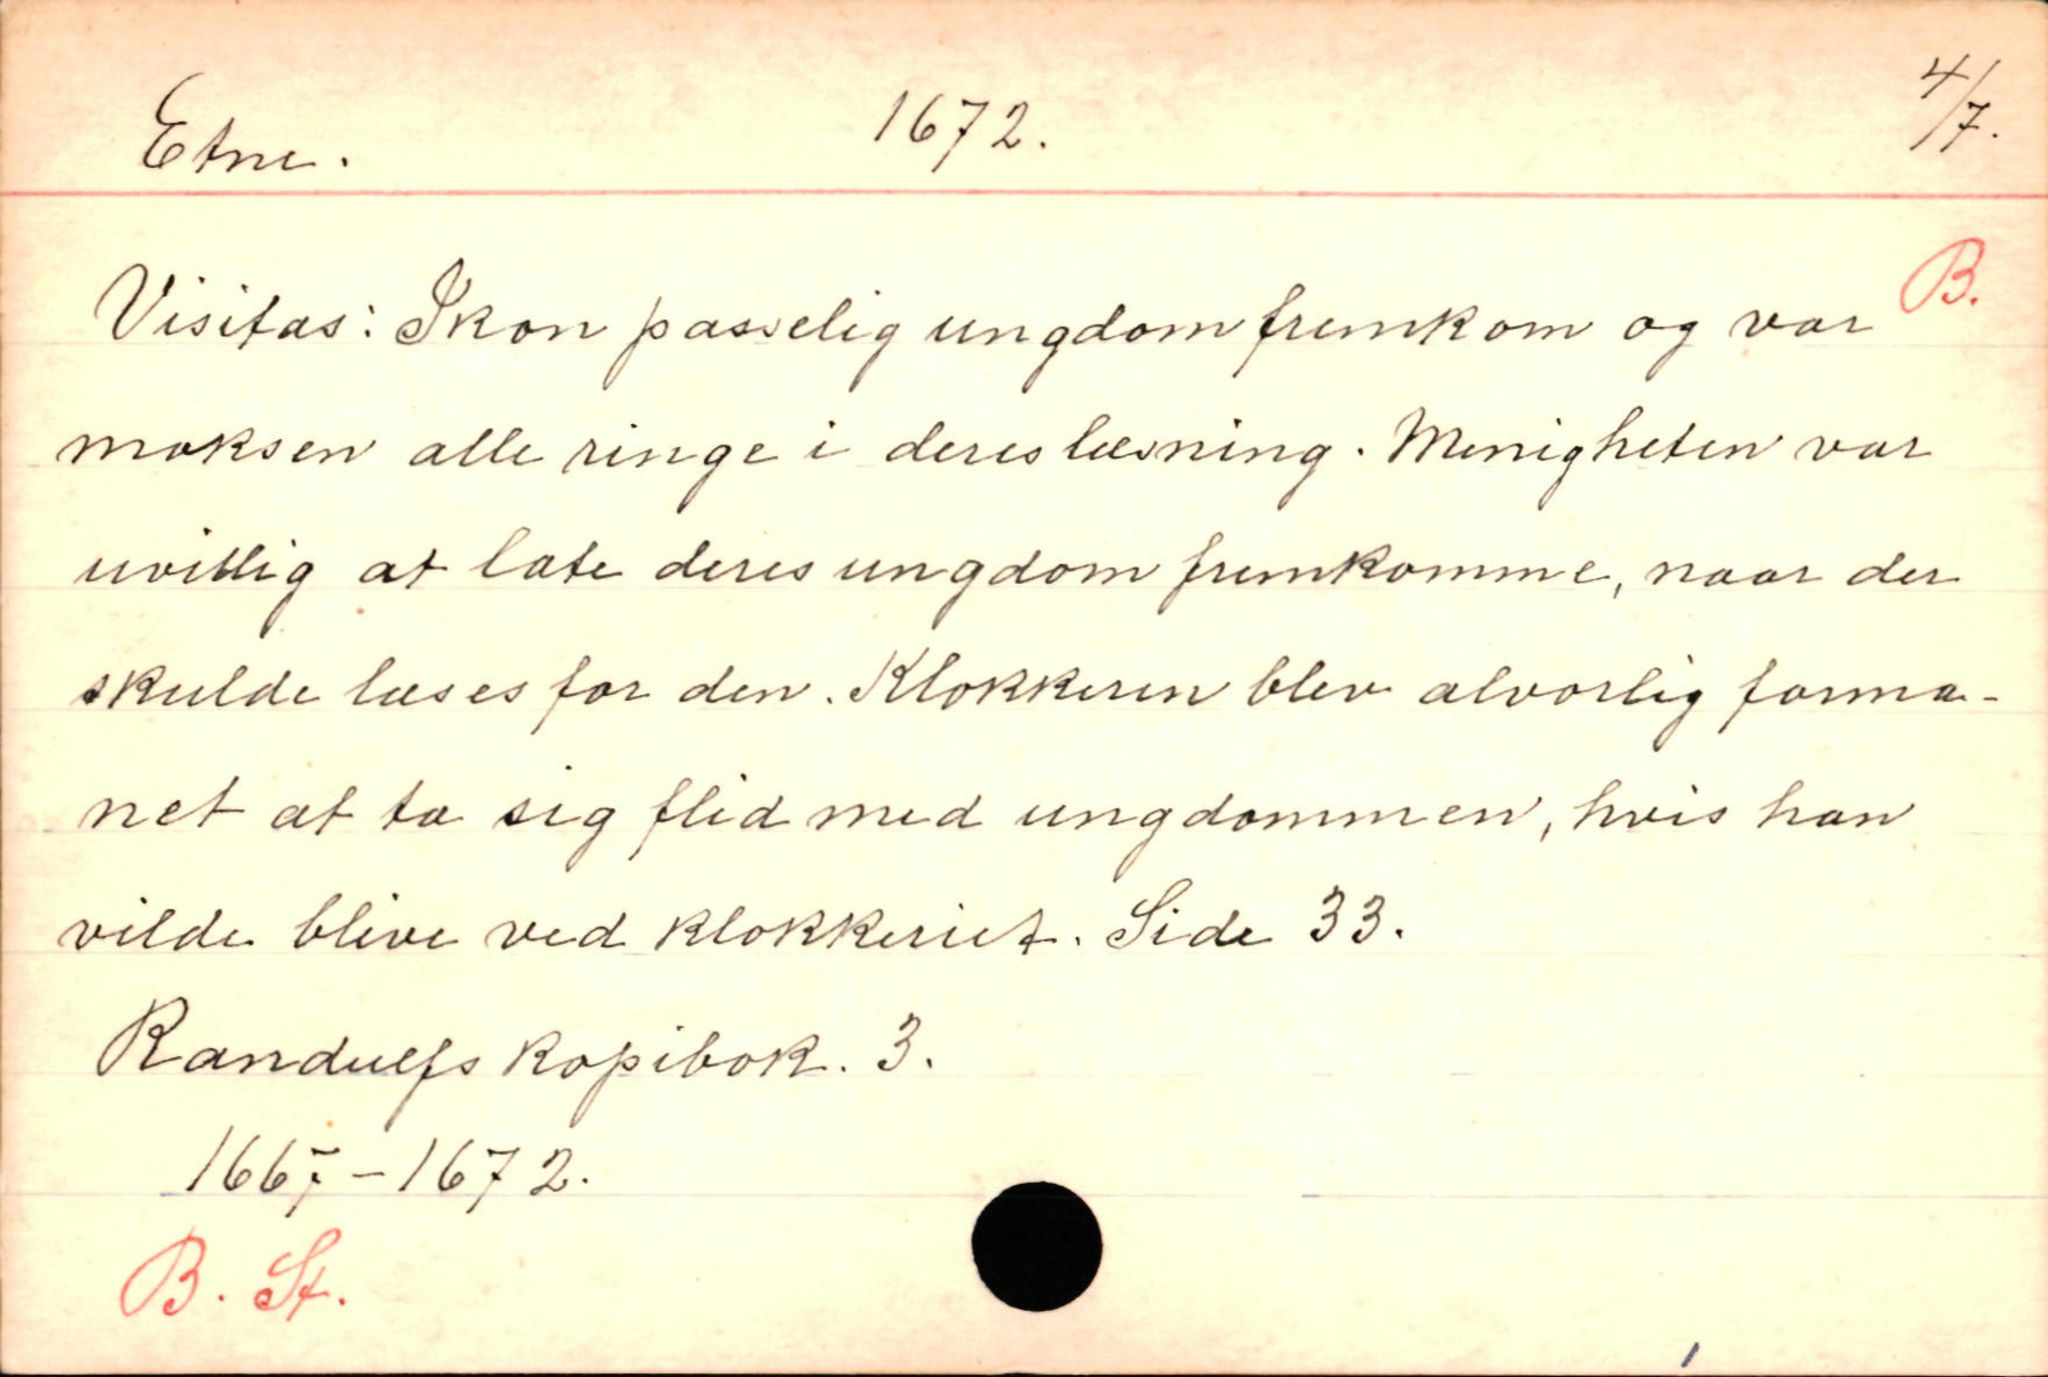 Etne. 1672. 4/7.
B.
Visitas: Ikon passelig ungdom fremkom og var
moksen alle ringe i deres læsning. Menigheten var
uvillig at late deres ungdom fremkomme, naar der
skulde læses for den. Klokkeren blev alvorlig forma-
net at ta sig flid med ungdommen, hvis han
vilde blive ved klokkeriet. Side 33.
Randulfs kopibok. 3.
1667-1672.
B. St.